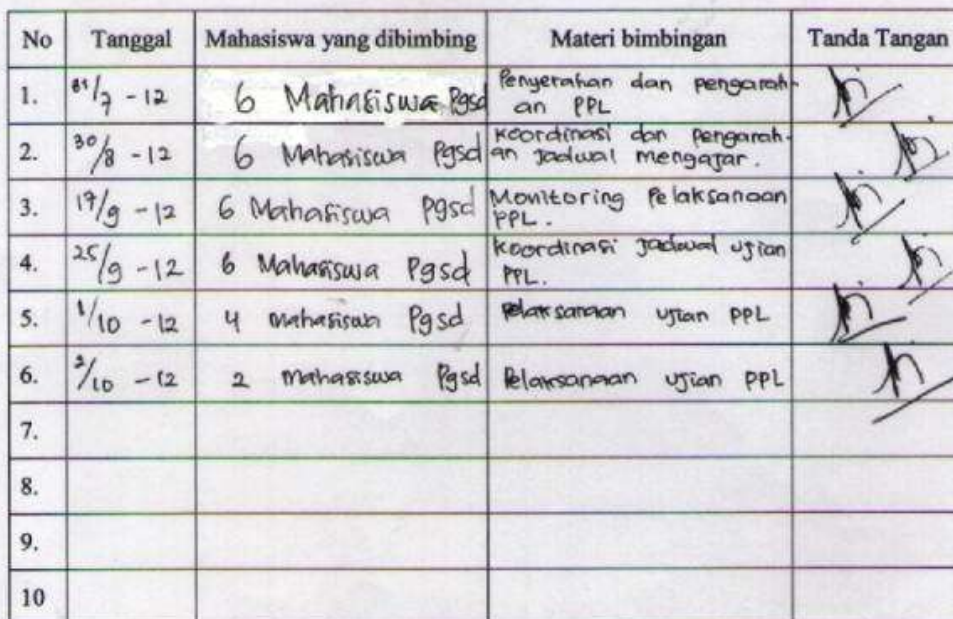 No Tanggal Mahasiswa yang dibimbing Materi bimbingan Tanda Tangan
1. 31/7 - 12 6 Mahasiswa Pgsd Penyerahan dan pengarah-
an PPL
2. 30/8 - 12 6 Mahasiswa Pgsd Koordinasi dan pengarah-
an Jadwal mengajar.
3. 17/9 - 12 6 Mahasiswa Pgsd Monitoring Pelaksanaan
PPL.
4. 25/9 - 12 6 Mahasiswa Pgsd Koordinasi Jadwal ujian
PPL.
5. 1/10 - 12 4 Mahasiswa Pgsd Pelaksanaan ujian PPL
6. 2/10 - 12 2 Mahasiswa Pgsd Pelaksanaan ujian PPL
7.
8.
9.
10